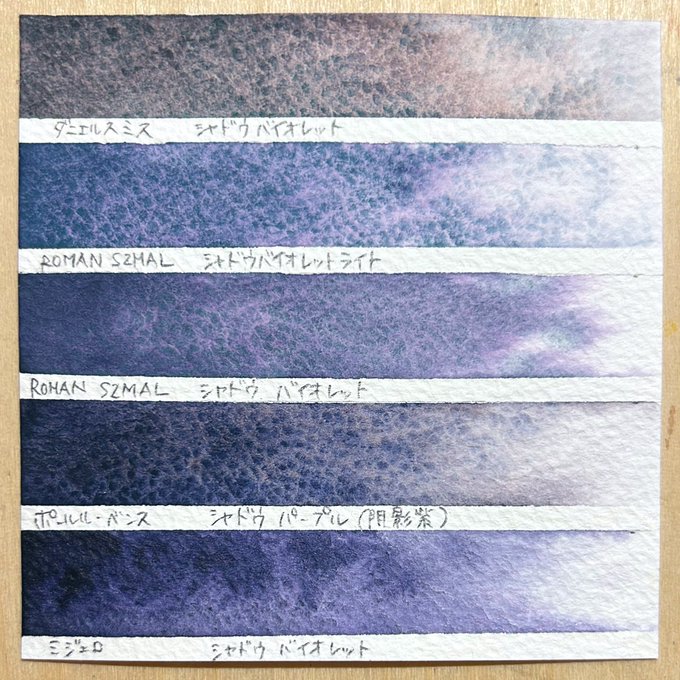 ダニエルスミス シャドウバイオレット
ROMAN SZMAL シャドウバイオレットライト
ROMAN SZMAL シャドウ バイオレット
ポールルーベンス シャドウ パープル (阴影紫)
ミジェロ シャドウ バイオレット